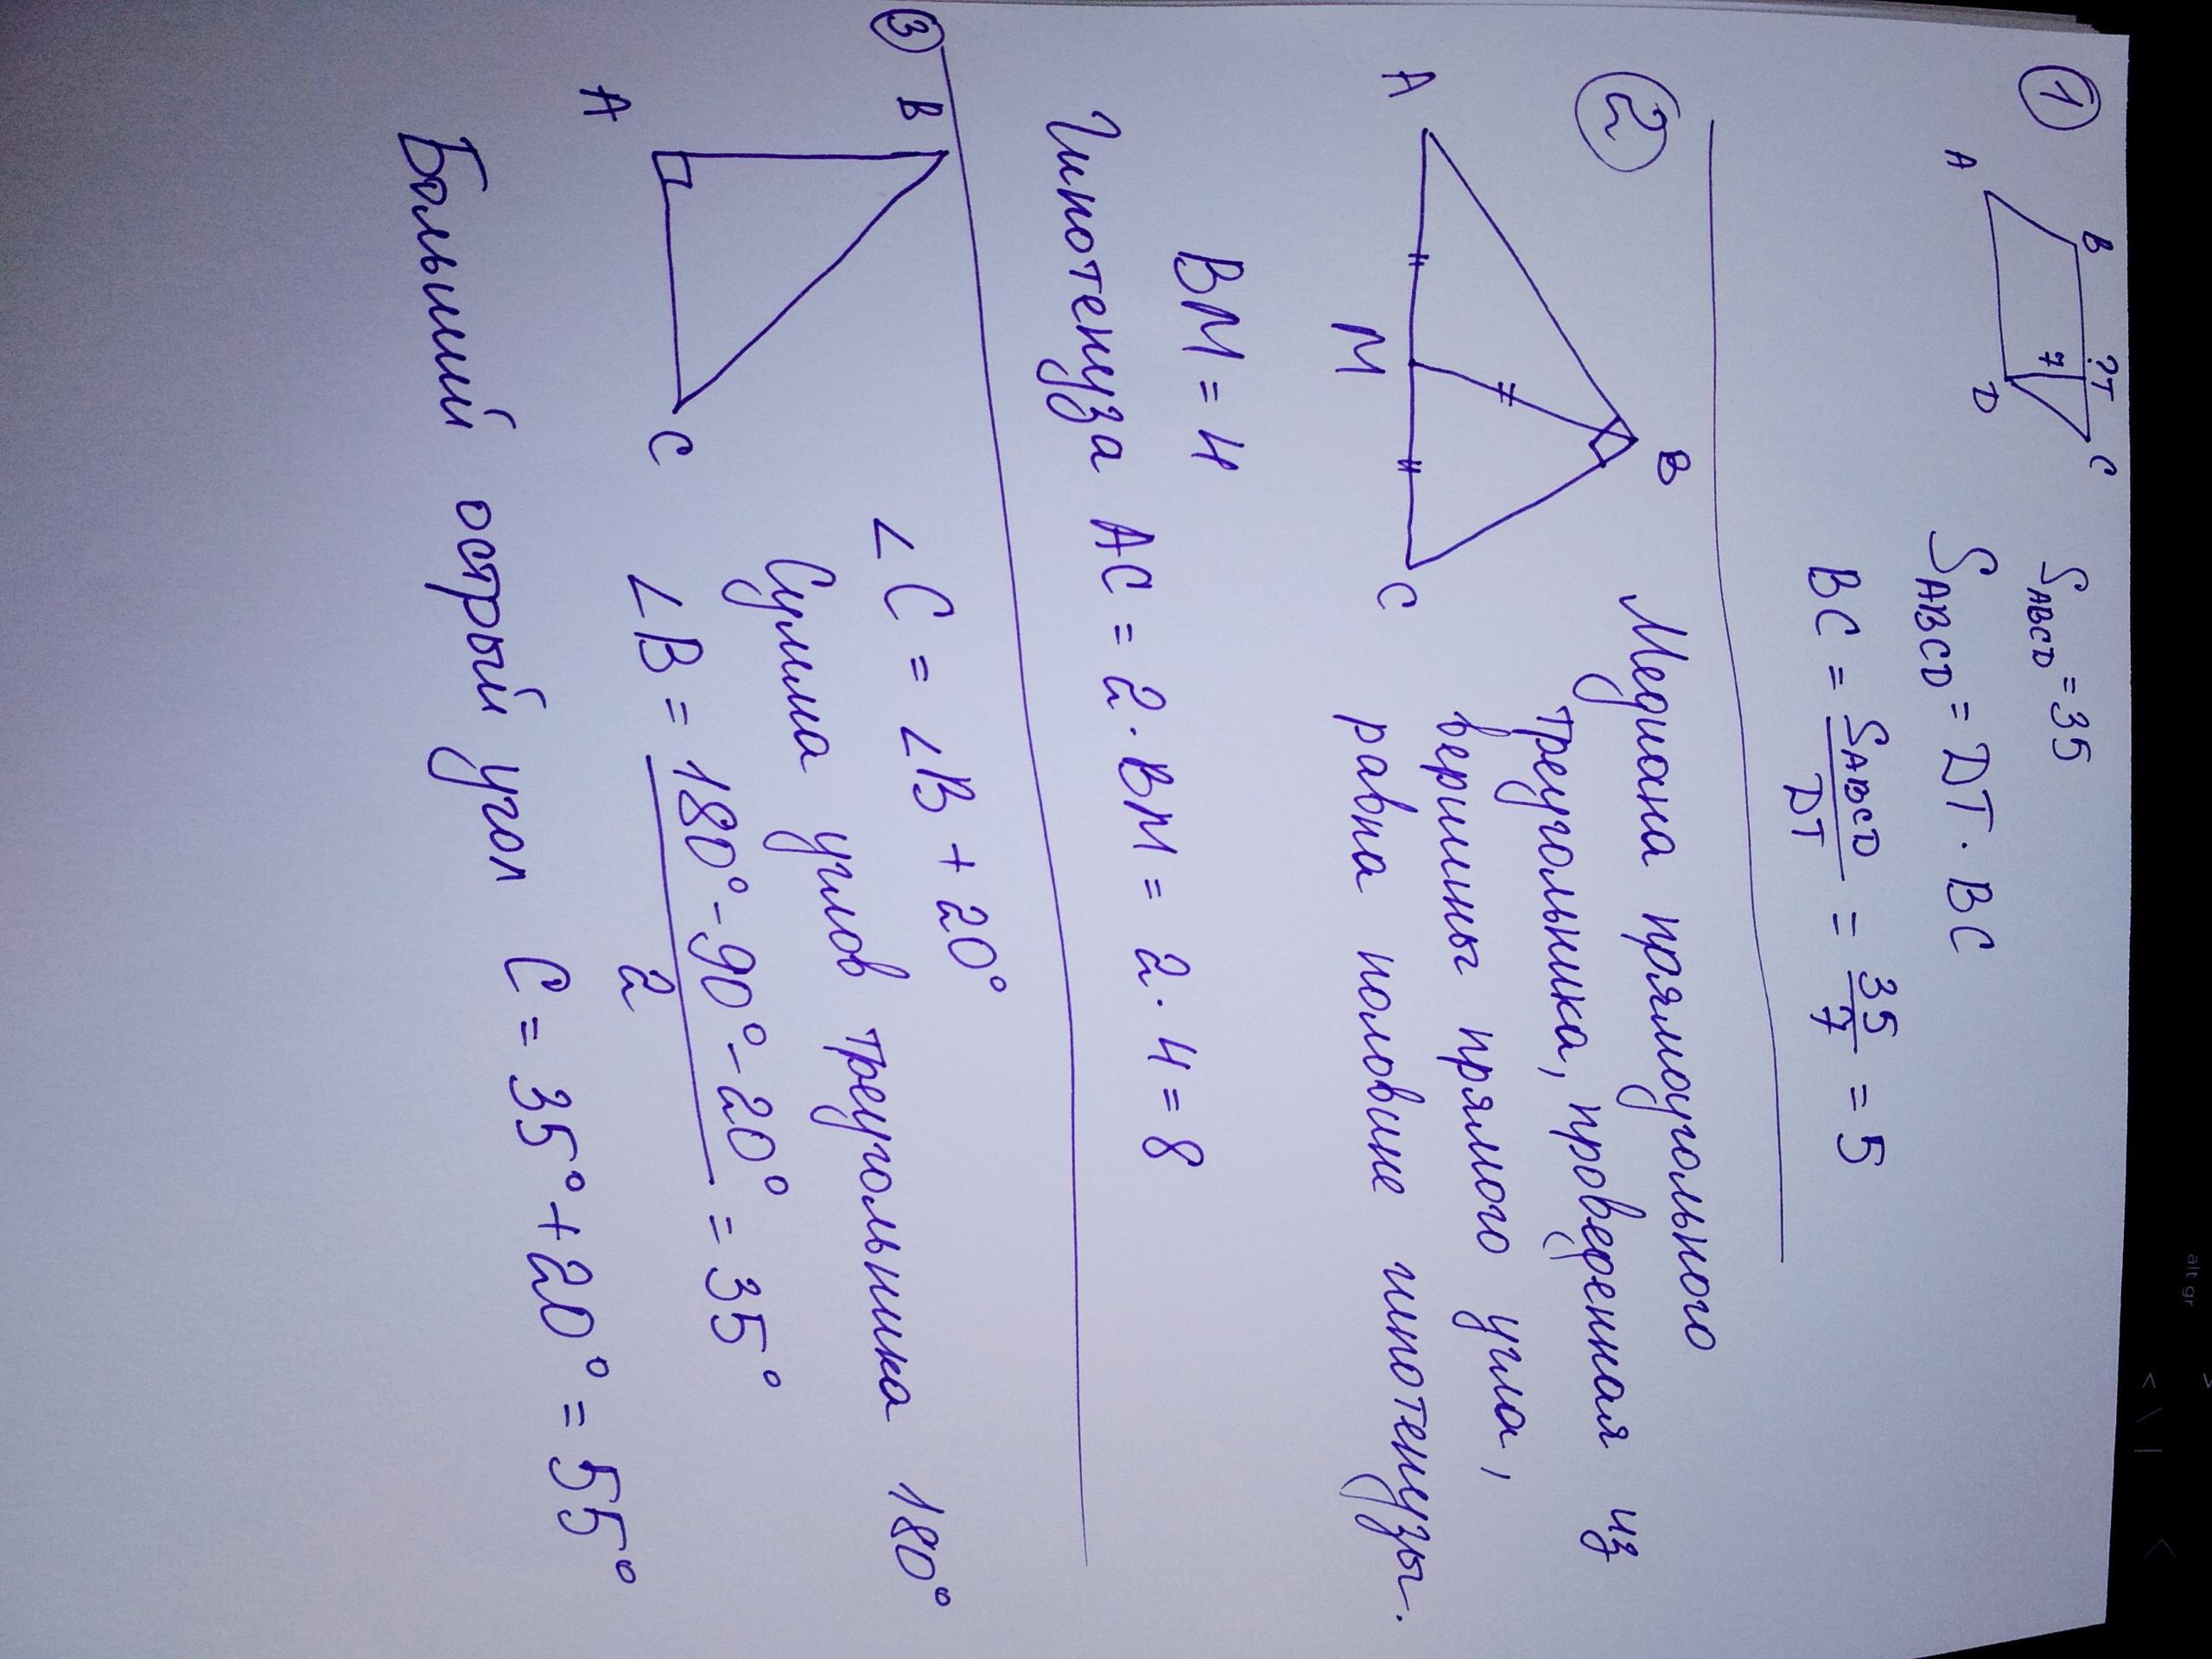 ①
A
B
?
T
C
7
D
S_ABCD = 35
S_ABCD = DT · BC
BC = S_ABCD / DT = 35/7 = 5
②
A
B
M
C
Медиана прямоугольного
треугольника, проведенная из
вершины прямого угла,
равна половине гипотенузы.
BM = 4
Гипотенуза AC = 2 · BM = 2 · 4 = 8
③
B
A
C
∠C = ∠B + 20°
Сумма углов треугольника 180°
∠B = (180° - 90° - 20°) / 2 = 35°
Больший острый угол C = 35° + 20° = 55°
alt gr
< \ |